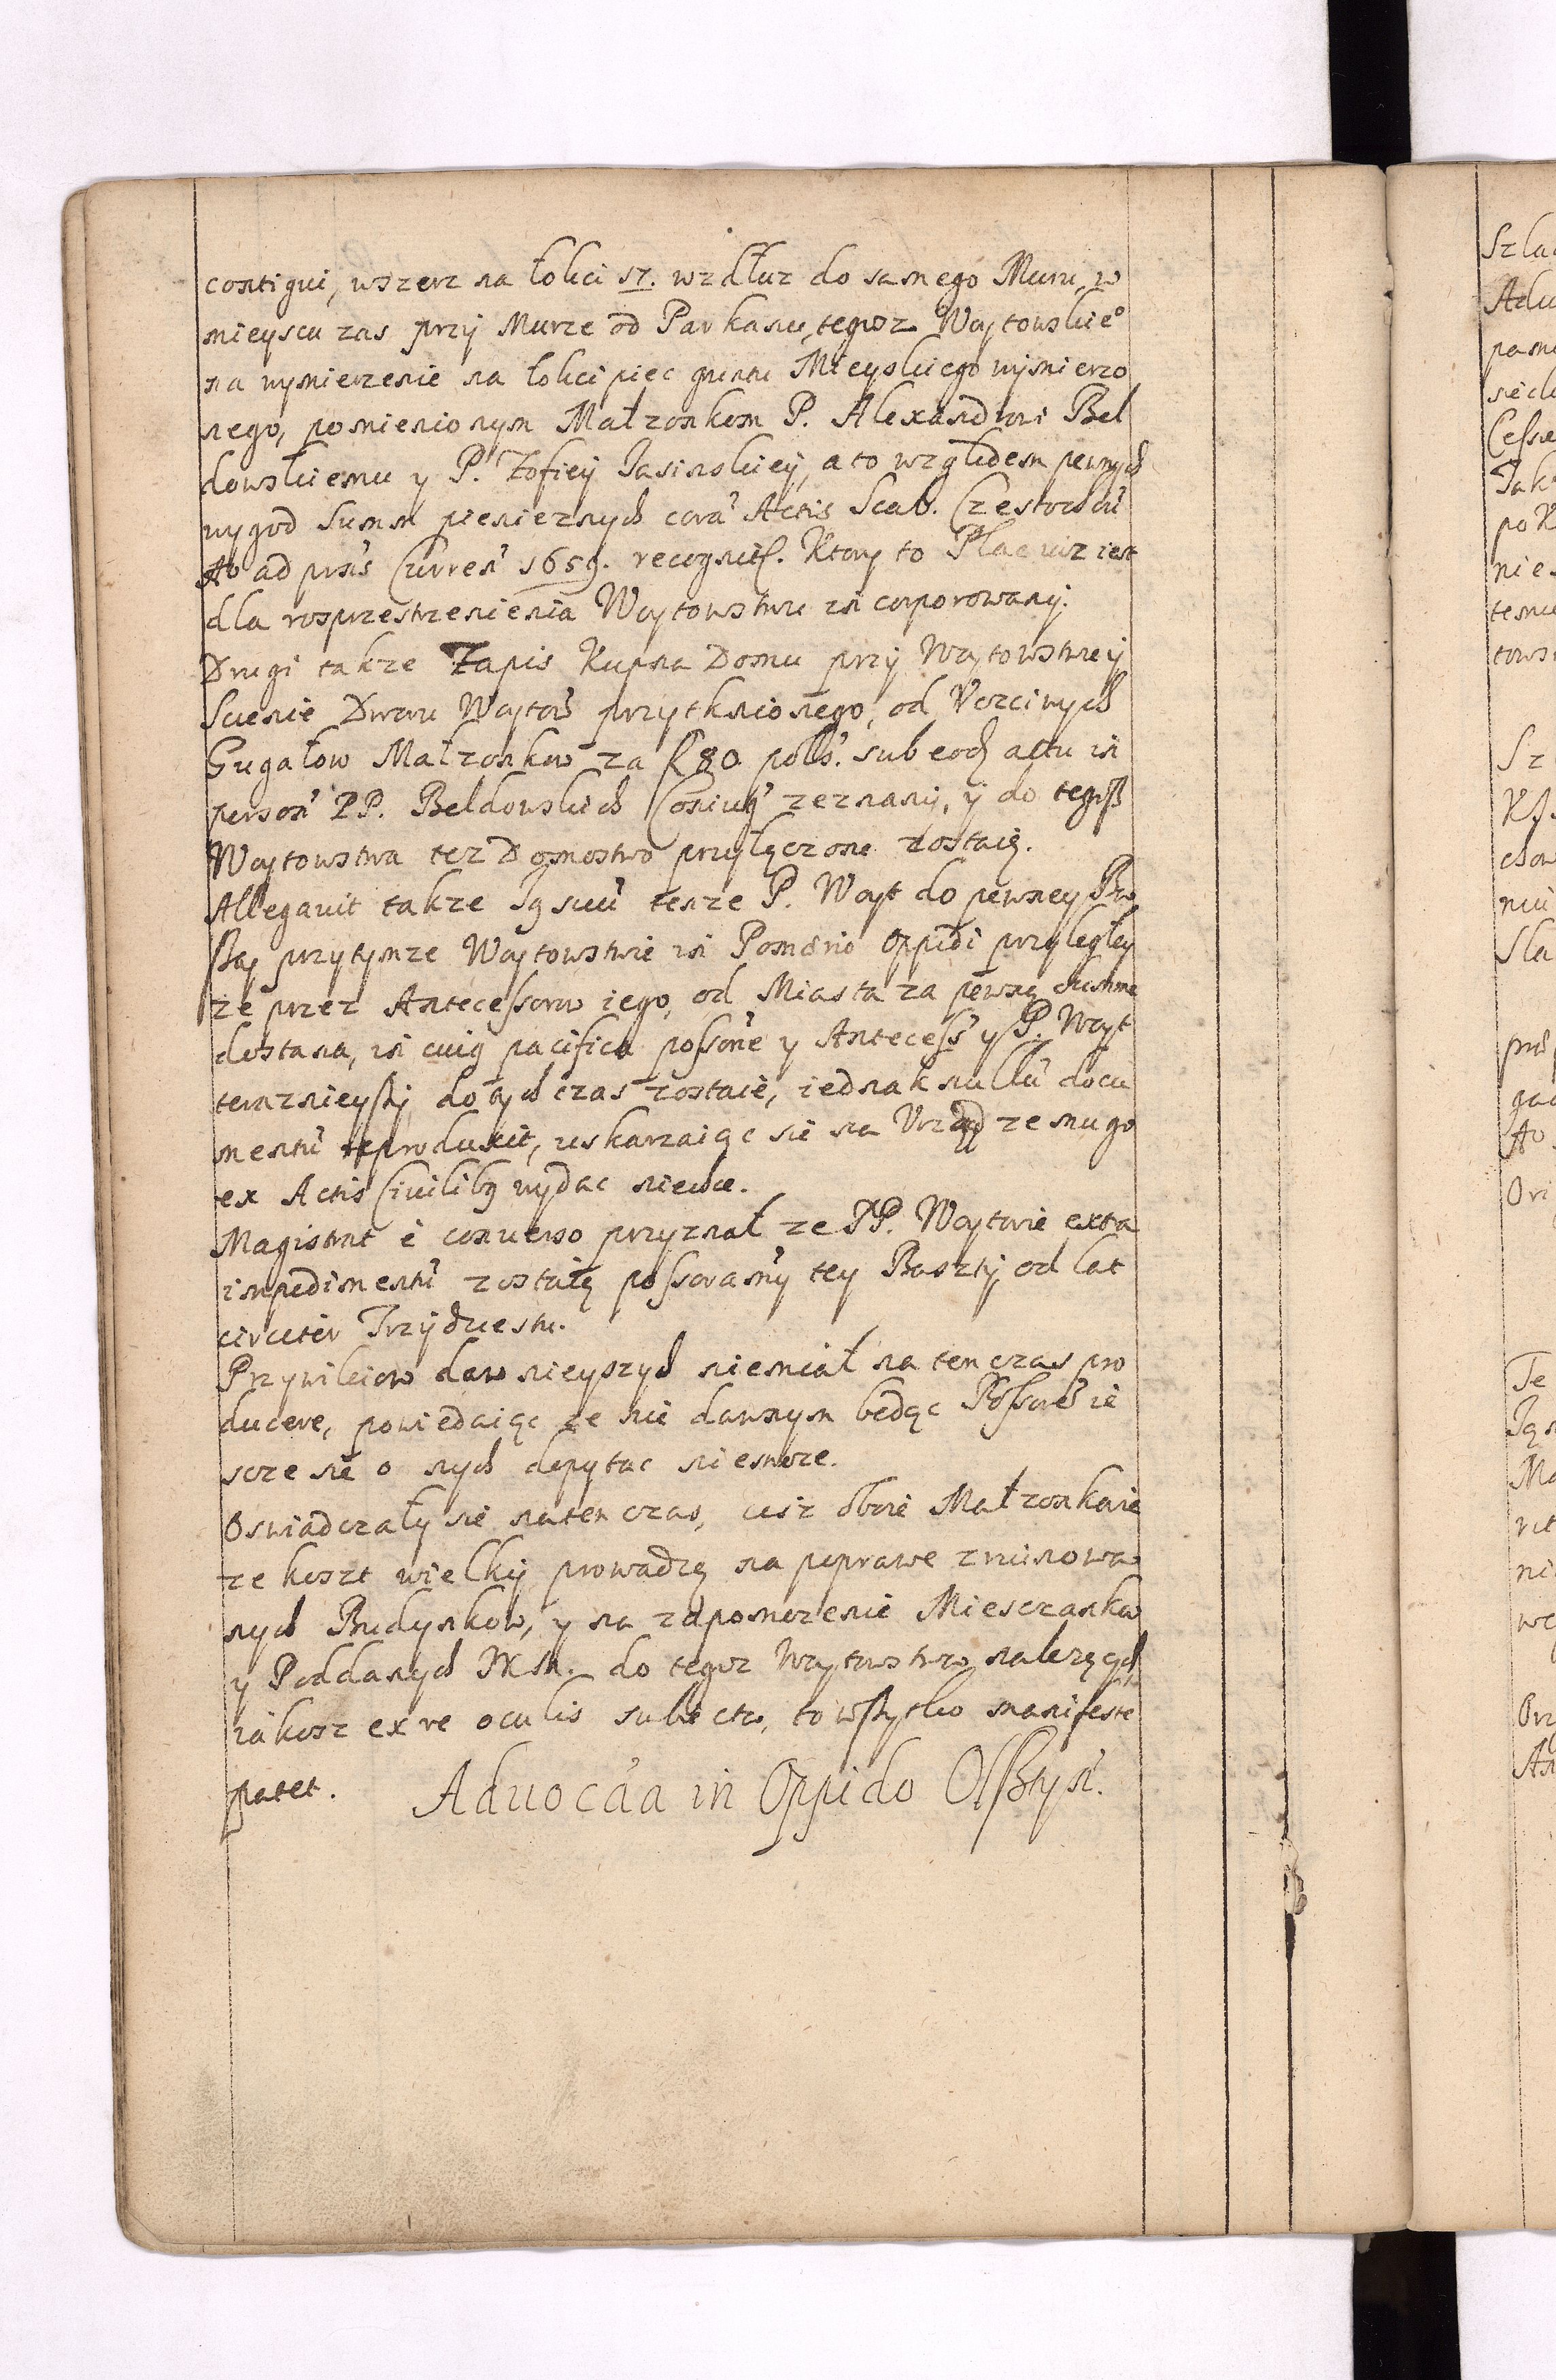 contigui, wszerz na łokci 57. wzdłuz do samego Muru, w
mieyscu zas przÿ Murze od Parkanu, tegosz Woÿtowskie°
na wymierzenie na łokci piec gruntu Mieyskiego wÿmierzo
nego, pomienionym Małzonkom P. Alexandrowi Bel
dowskiemu y P. Zofieÿ Jasinskieÿ, a to względem pewnych
wygod Summ pienieznych cora' Actis Scab. Częstoch'
Ao ad pns Curren' 1659. recognit. Ktory to Plac iuz iest
dla rosprzestrzenienia Woÿtowstwu in corporowanÿ.
Drugi takze Zapis Kupna Domu przÿ Woÿtowskieÿ
Scienie Dworu Woÿtow' przytknionego, od Vczciwych
Gugałow Małzonkow za f 80 pols'. sub eod actu in
person' PP. Beldowskich Coniug' zeznanÿ, ÿ do tegosz
Woÿtowstwa tez Domostwo przyłączone zostaię.
Allegauit takze tenze P. Woyt do pewney Ba
szty przytymze Woÿtowstwie in Pomerio Oppidi przyległey
ze przez Antecessorow iego, od Miasta za pewną summe
dostana, in cuius pacifica posson'e y Antecess' y P. Woyt
teraznieyszÿ do tych czas zostaie, iednak nullu' docu
mentu' reproduxit, uskarzaiąc sie na Vrząd ze mu go
ex Actis Ciuilibus wydac niechce.
Magistrat è conuerso przyznał ze PP. Woÿtowie extra
impedimentu' zostaią possoramÿ tey Basztÿ, od lat
circiter Trzÿdziestu.
Przywileiow dawnieyszych niemiał na ten czas pro
ducere, powiedaiąc ze nie dawnym będąc Possore' ie
scze sie o nych dopytac niemoze.
Oswiadczały sie natenczas, cisz oboie Małzonkowie
ze koszt wielkÿ prowadzą na poprawe zruinowa
nych Budynkow, y na zapomozenie Miesczankow
y Poddanych JKM. do tegosz Woÿtowstwa nalezących
iakosz ex re oculis subiecta, to wszytko manifeste
patet.
Aduoca'a in Oppido Olsztyn'.